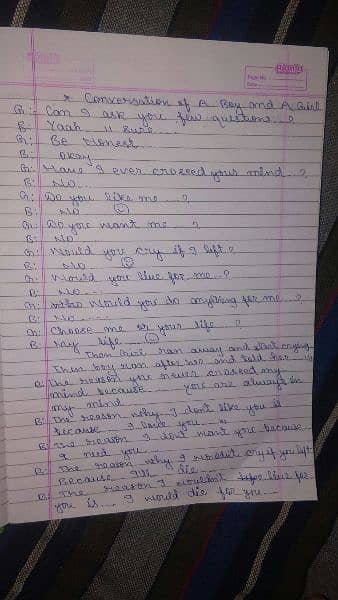 * Conversation of A Boy and A Girl
G:- Can I ask you few question...?
B:- Yaah !! sure....
G:- Be Honest...
B:- Okay
G:- Have I ever crozeed your mind...?
B:- No...
G:- Do you like me....?
B:- No
G:- Do you want me...?
B:- No
G:- Would you cry if I left?
B:- No
G:- Would you live for me...?
B:- No....
G:- Would you do anything for me..?
B:- No.....
G:- Choose me or your life...?
B:- My life...
Then Girl ran away and start crying
Then boy ran after her and told her...
B:- The reason you never crossed my
mind because.... you are always in
my mind
B:- The reason why I don't like you is
because I love you...
B:- The reason I dont want you because
I need you....
B:- The reason why I wouldnt cry if you left
Because I'll die...
B:- The reason I wouldnt live for
you is... I would die for you...